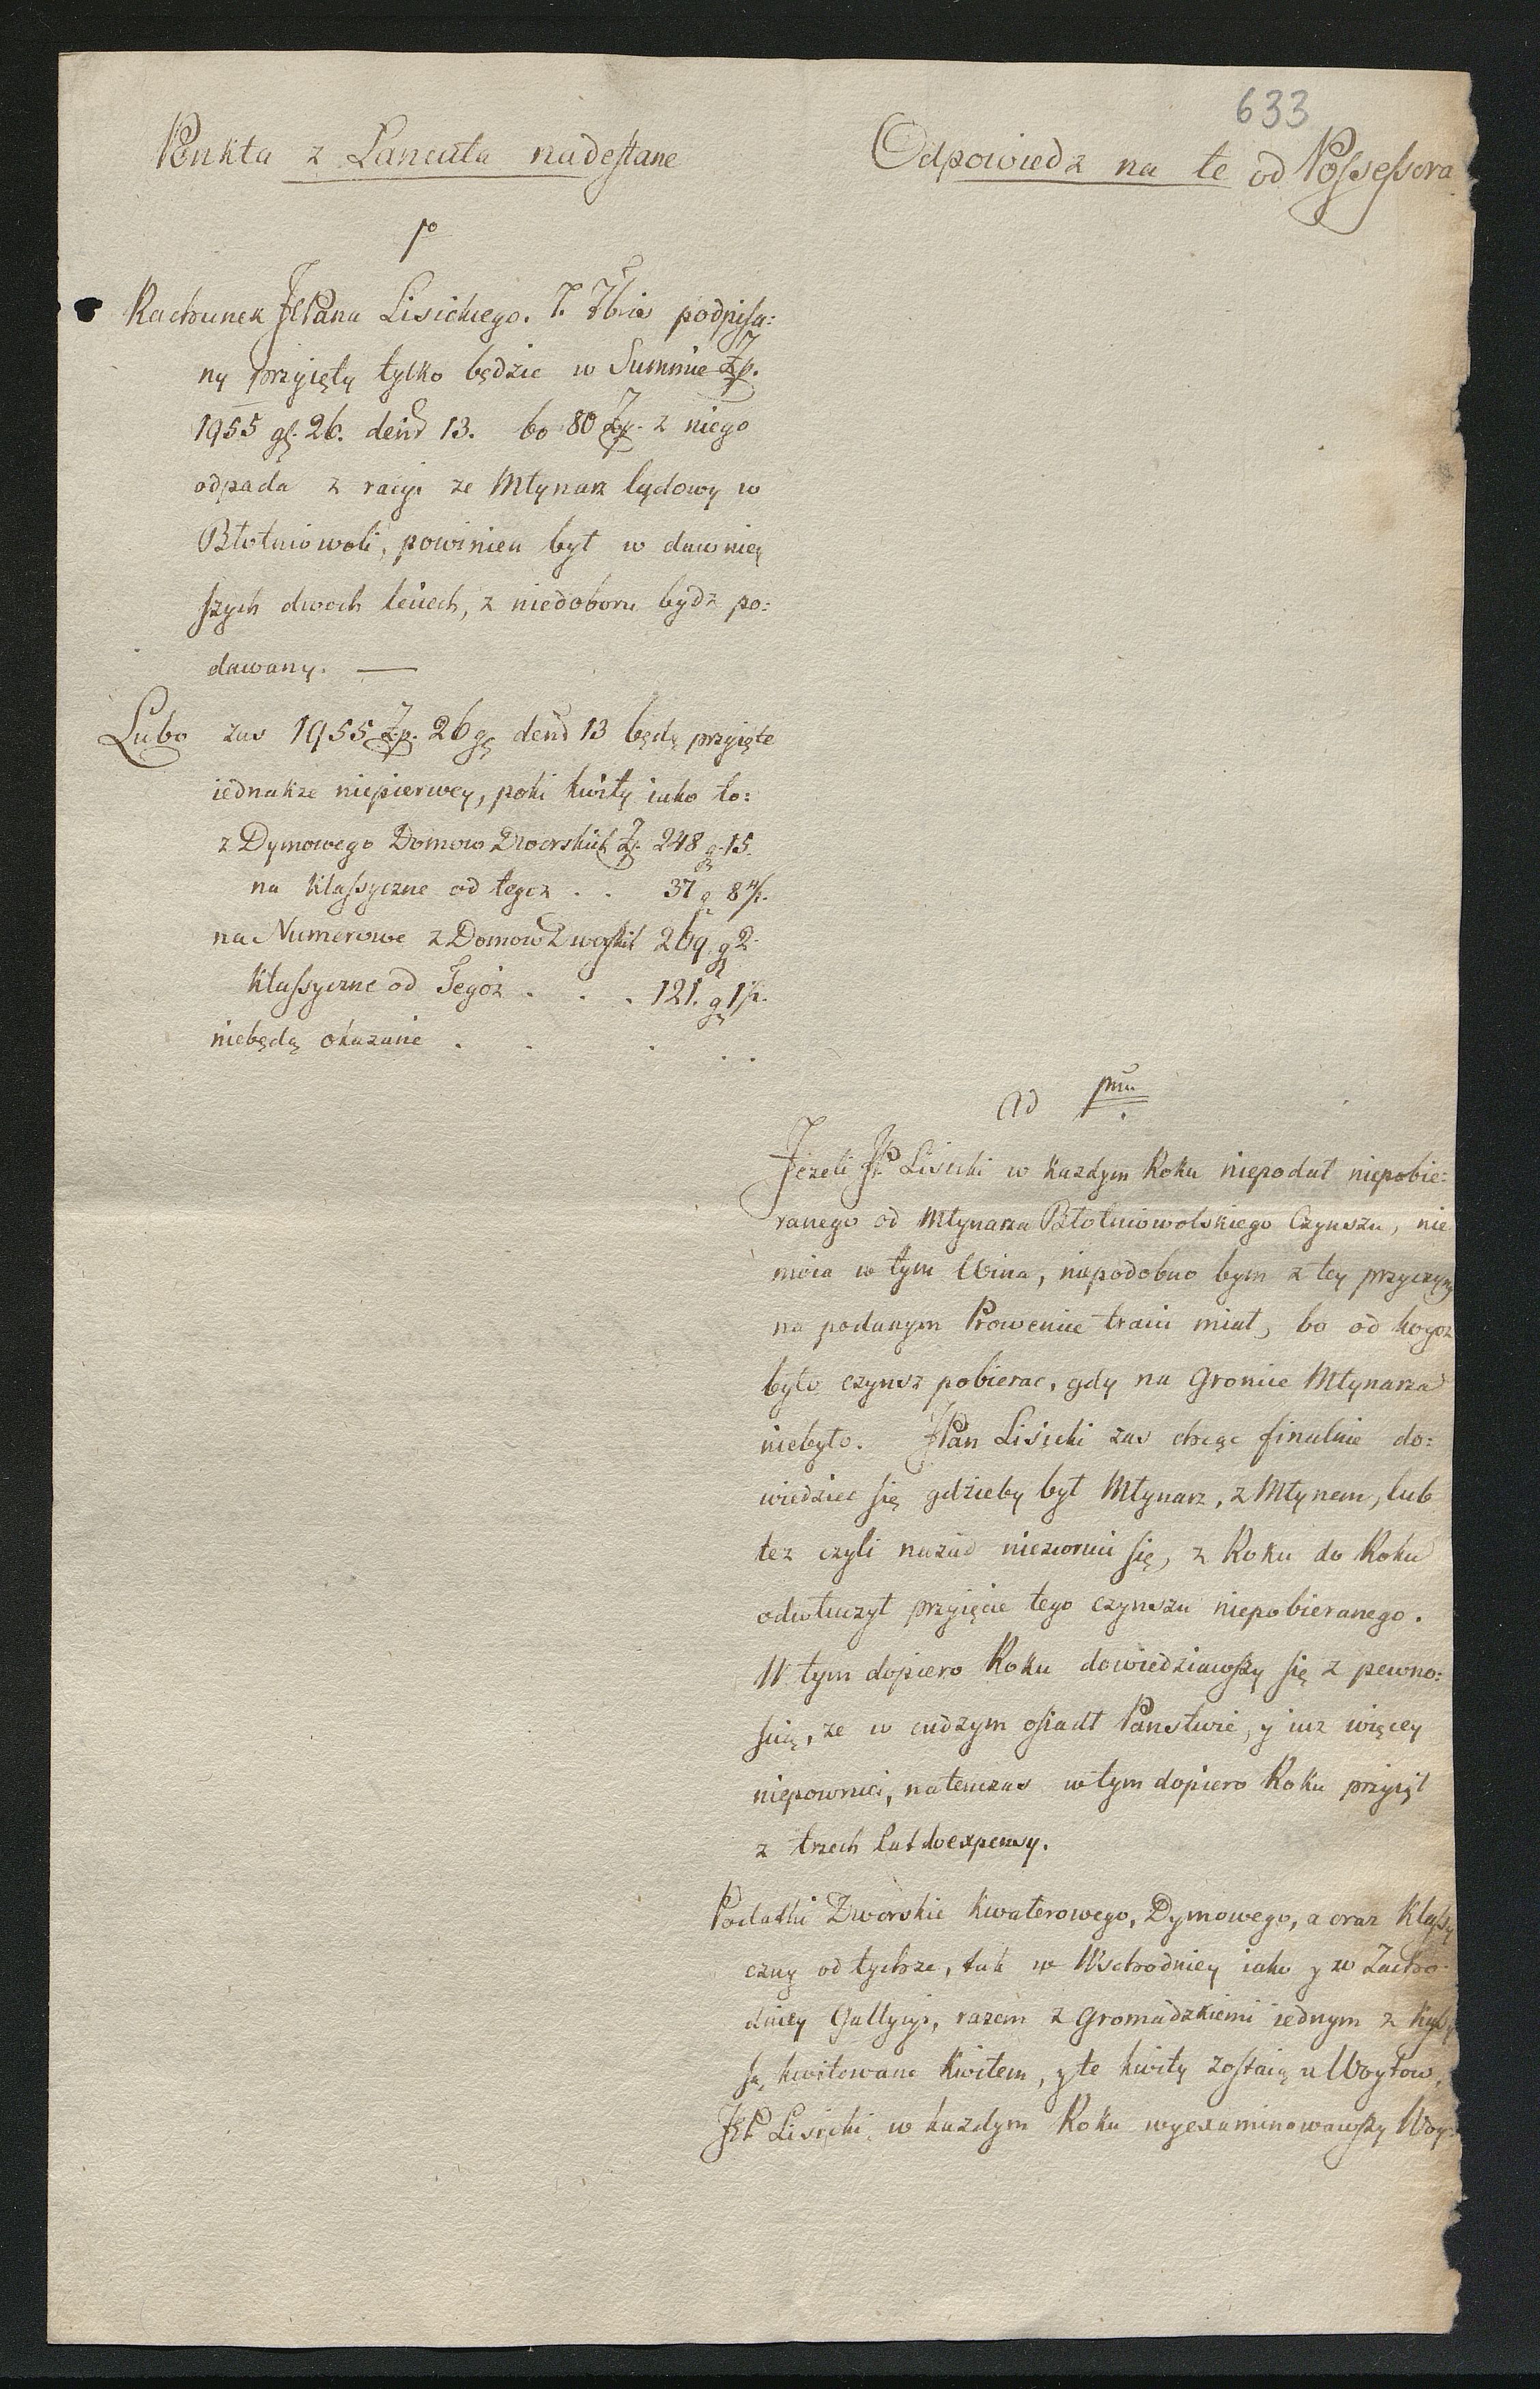 633
Punkta z Lancuta nadesłane
1o
Rachunek JPana Lisickiego. 7. 7bris podpisa:
ny przyięty tylko będzie w Summie Zp.
1955 g. 26. den 13. bo 80 Zp. z niego
odpada z racyi ze Młynarz lądowy w
Błotniowoli, powinien był w dawniey
szych dwoch leciech, z niedoboru bydz po:
dawany. —
Lubo zas 1955 Zp. 26 g. den 13 będą przyięte
iednakze niepierwey, poki kwity iako to:
z Dymowego Domow Dworskich Zp. 248 g. 15.
na klassyczne od tegoz . . 37 g 8 4/.
na Numerowe z Domow Dworskich 269. g 2
klassyczne od Tegoz . . . 121. g 1
niebędą okazane . . . . .
Odpowiedz na te od Possessora
Ad pmu
Jezeli JP Lisicki w kazdym Roku niepodał niepobie:
ranego od Młynarza Błotniowolskiego Czynszu, nie
moia w tym Wina, niepodobno bym z tey przyczyny
na podanym Prowencie tracic miał, bo od kogoz
było czynsz pobierac, gdy na Groncie Młynarza
niebyło. JPan Lisicki zas chcąc finalnie do:
wiedziec się gdzieby był Młynarz, z Młynem, lub
tez czyli nazad niezwroci się, z Roku do Roku
odwłuczył przyięcie tego czynszu niepobieranego.
W tym dopiero Roku dowiedziawszy się z pewno:
scią, ze w cudzym osiadł Panstwie, y iuz więcey
niepowroci, natenczas w tym dopiero Roku przyiął
z trzech lat do expensy.
Podatki Dworskie kwaterowego, Dymowego, a oraz klassy
czny od tychze, tak w Wschodniey iako y w Zacho-
dniey Gallycyi, razem z Gromadzkiemi iednym z
są kwitowane kwitem, y te kwity zostaią u Woytow,
JP. Lisicki w kazdym Roku wyexaminowawszy Woy: